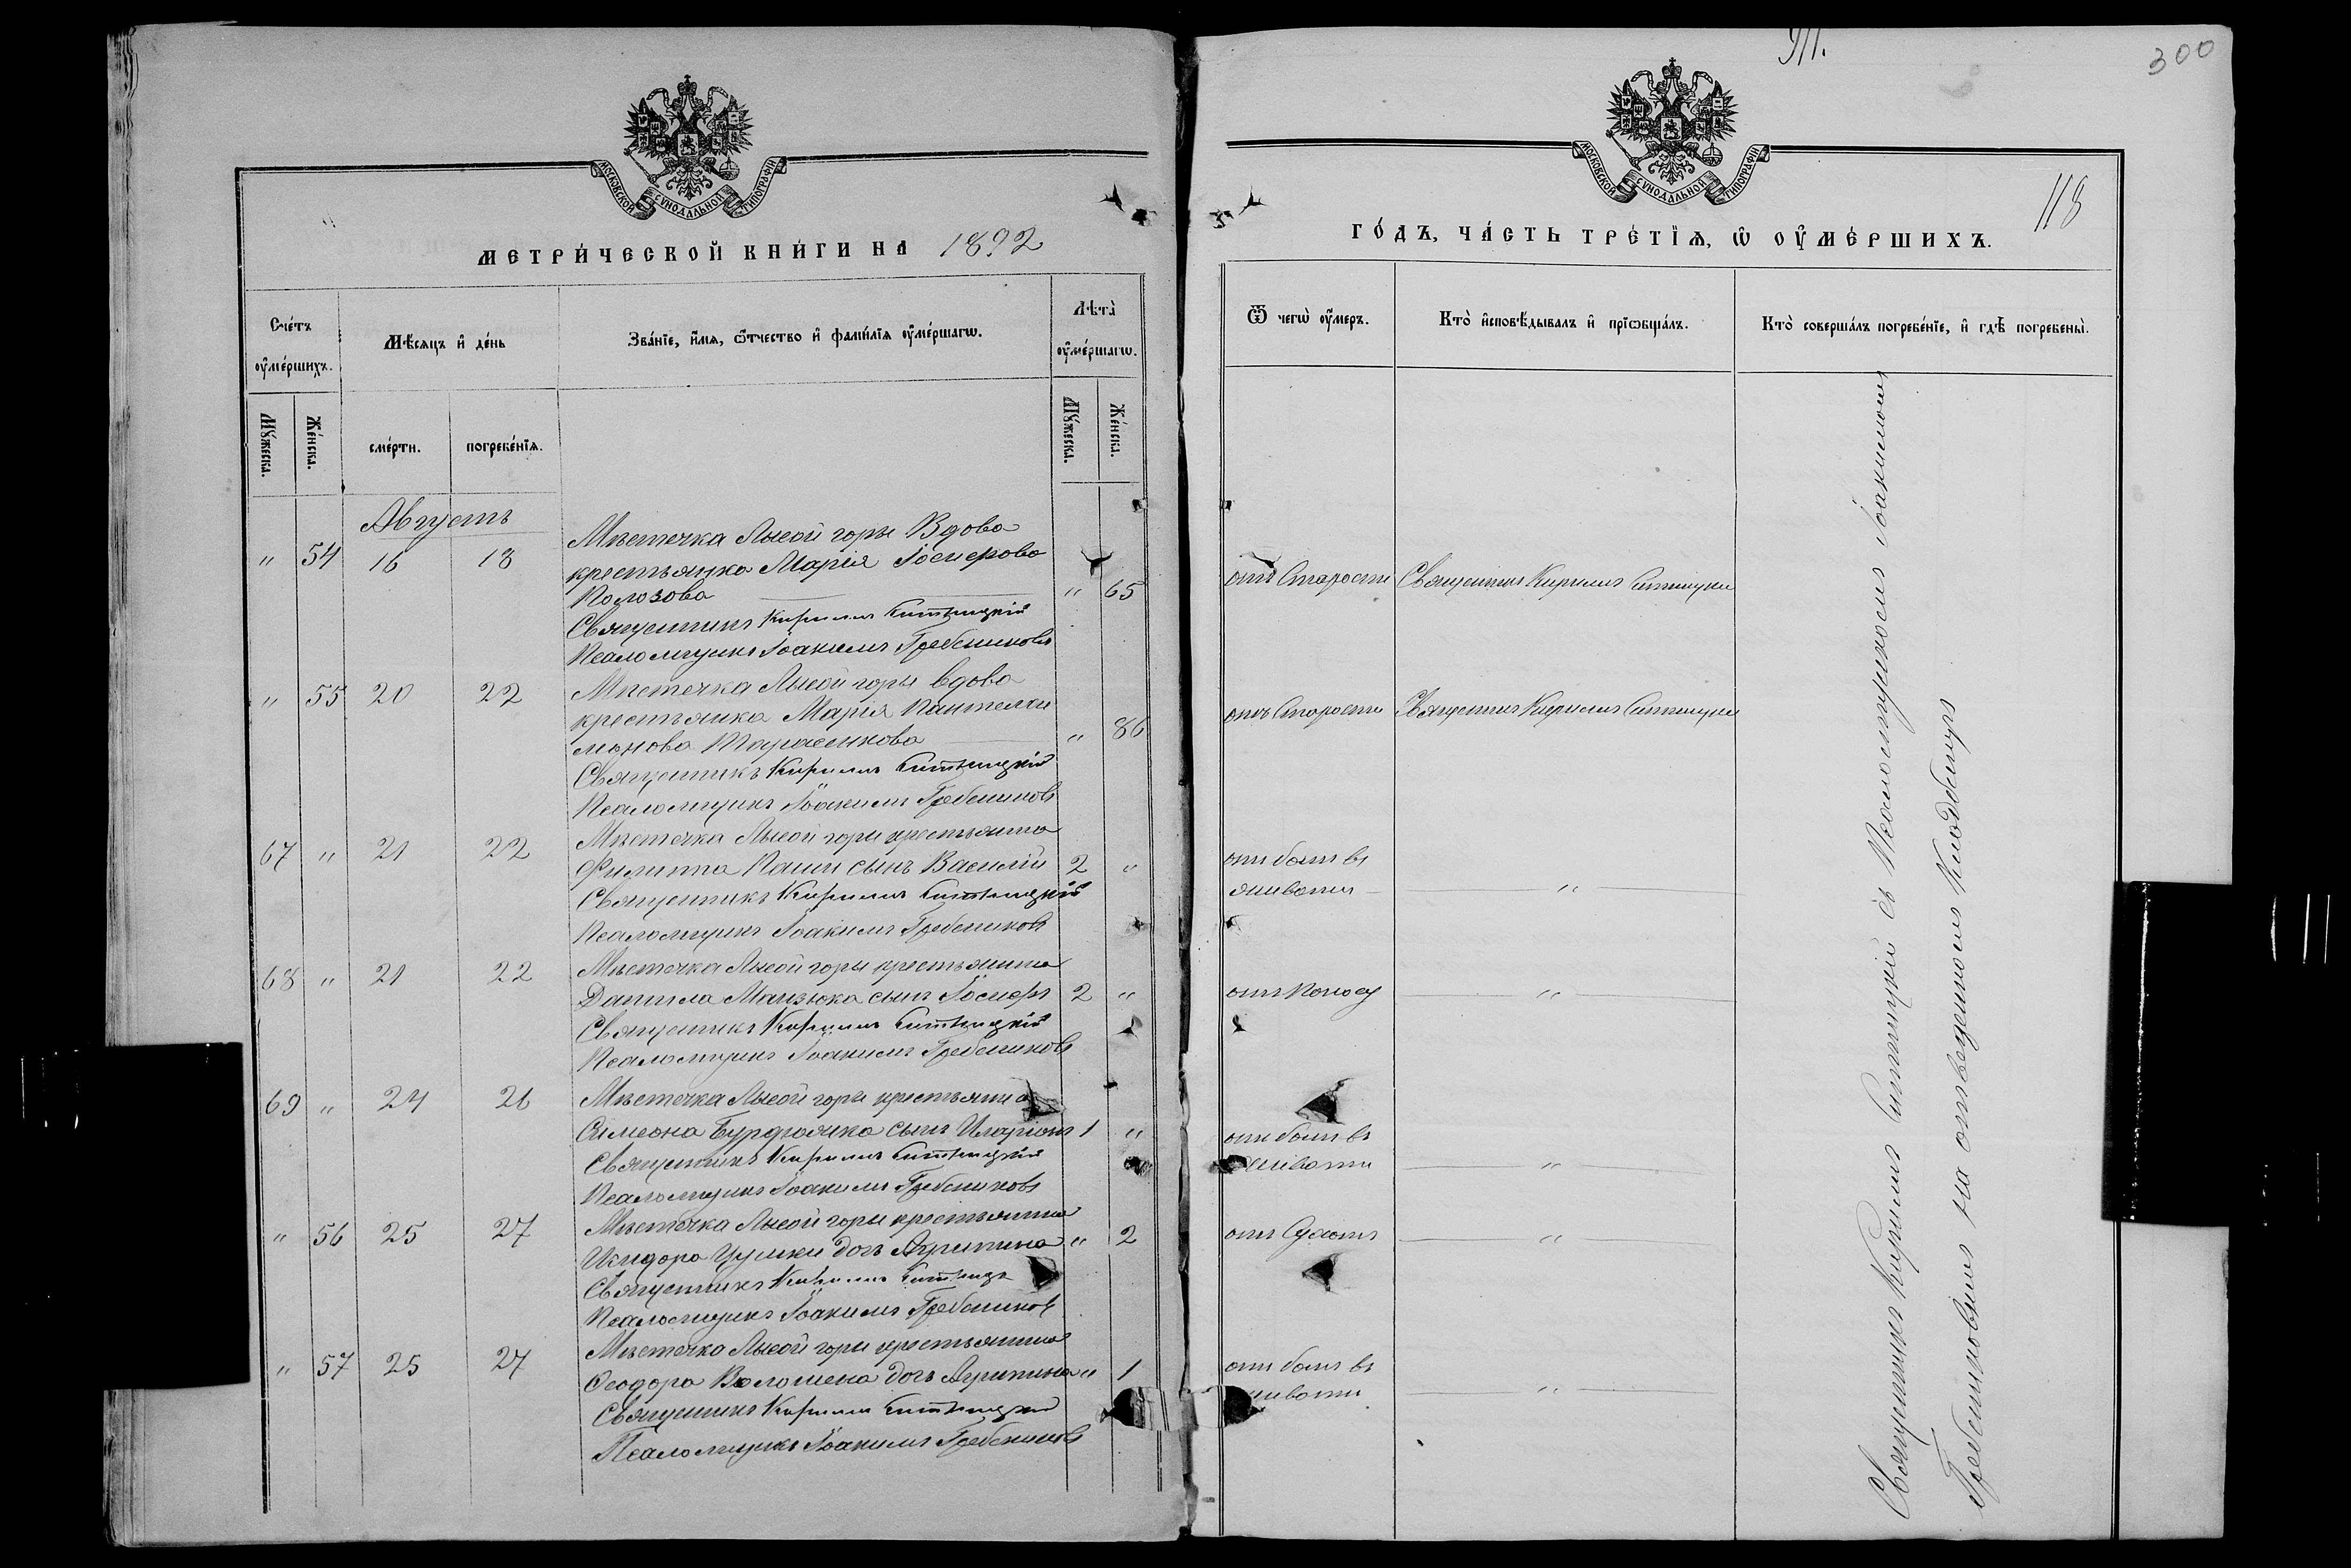 МОСКОВСКОЙ СѴНОДАЛЬНОЙ ТИПОГРАФІИ
МЕТРИ́ЧЕСКОЙ КНИ́ГИ НА 1892
Сче́тъ оу҆ме́ршихъ.
Мѣ́сяцъ и҆ де́нь
Зва́нїе, и҆́мѧ, ѻ҆́тчество и҆ фами́лїѧ оу҆ме́ршагѡ.
Лѣта̀ оу҆ме́ршагѡ.
Мꙋ́жеска.
Же́нска.
сме́рти.
погребе́нїѧ.
Мꙋ́жеска.
Же́нска.
Августъ
" 54 16 18
Мѣстечка Лысой горы Вдова
крестьянка Марія Іосифова
Колозова " 65
Священникъ Кириллъ Ситницкій
Псаломщикъ Іоакимъ Гребениковъ
" 55 20 22
Мѣстечка Лысой горы вдова
крестьянка Марія Пантелей
монова Тарасенкова " 86
Священникъ Кириллъ Ситницкій
Псаломщикъ Іоакимъ Гребениковъ
67 " 21 22
Мѣстечка Лысой горы крестьянина
Филиппа Паши сынъ Василій 2 "
Священникъ Кириллъ Ситницкій
Псаломщикъ Іоакимъ Гребениковъ
68 " 21 22
Мѣстечка Лысой горы крестьянина
Данила Манзюка сынъ Іосифъ 2 "
Священникъ Кириллъ Ситницкій
Псаломщикъ Іоакимъ Гребениковъ
69 " 24 26
Мѣстечка Лысой горы крестьянина
Симеона сынъ Иларіонъ 1 "
Священникъ Кириллъ Ситницкій
Псаломщикъ Іоакимъ Гребениковъ
" 56 25 27
Мѣстечка Лысой горы крестьянина
Исидора дочь Агрипина " 2
Священникъ Кириллъ Ситницк
Псаломщикъ Іоакимъ Гребениковъ
" 57 25 27
Мѣстечка Лысой горы крестьянина
Ѳеодора Волошена дочь Агрипина " 1
Священникъ Кириллъ Ситницкій
Псаломщикъ Іоакимъ Гребениковъ
300
МОСКОВСКОЙ СѴНОДАЛЬНОЙ ТИПОГРАФІИ
118
ГО́ДЪ, ЧА́СТЬ ТРЕ́ТЇѦ, Ѡ҆ ОУ҆МЕ́РШИХЪ.
Ѿ чегѡ̀ оу҆́меръ.
Кто̀ и҆сповѣ́дывалъ и҆ прїѡбща́лъ.
Кто̀ соверша́лъ погребе́нїе, и҆ гдѣ̀ погребены̀.
отъ Старости Священникъ Кириллъ Ситницкій
отъ Старости Священникъ Кириллъ Ситницкій
отъ боли въ
животи "
отъ поносу "
отъ боли въ
животи "
отъ Сухотъ "
отъ боли въ
животи "
Священникъ Кириллъ Ситницкій съ Псаломщикомъ Іоакимомъ
Гребениковымъ на отведенномъ кладбищѣ